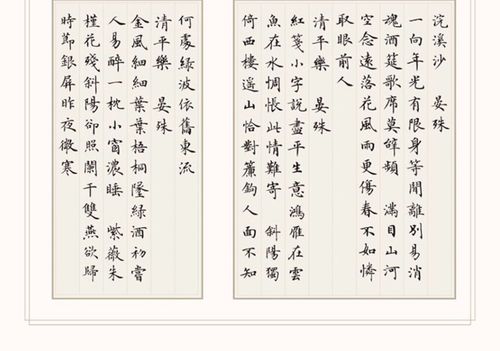 浣溪沙 晏殊
一向年光有限身等閒離別易消
魂酒筵歌席莫辭頻 滿目山河
空念遠落花風雨更傷春不如憐
取眼前人
清平樂 晏殊
紅箋小字說盡平生意鴻雁在雲
魚在水惆悵此情難寄 斜陽獨
倚西樓遙山恰對簾鉤人面不知
何處綠波依舊東流
清平樂 晏殊
金風細細葉葉梧桐墜綠酒初嘗
人易醉一枕小窗濃睡 紫薇朱
槿花殘斜陽卻照闌干雙燕欲歸
時節銀屏昨夜微寒